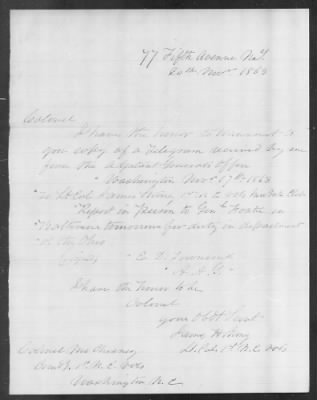 77 Fifth Avenue N.Y.
20th Novr 1863
Colonel
I have the honor to transmit to
you copy of a Telegram received by me
from the Adjutant Generals Office
"Washington Novr 17th 1863
"To Lt Col James 1st N C Vols New York Club
"Report in Person to Genl in
"Baltimore tomorrow for duty in department
"of the Ohio
(signed) "E. D. Townsend
"A. A. G."
I have the honor to be
Colonel
your Obt Servt
James
Lt. Col. 1st N. C. Vols
Colonel McChesney
Comdg 1st N.C. Vols
Washington N. C.